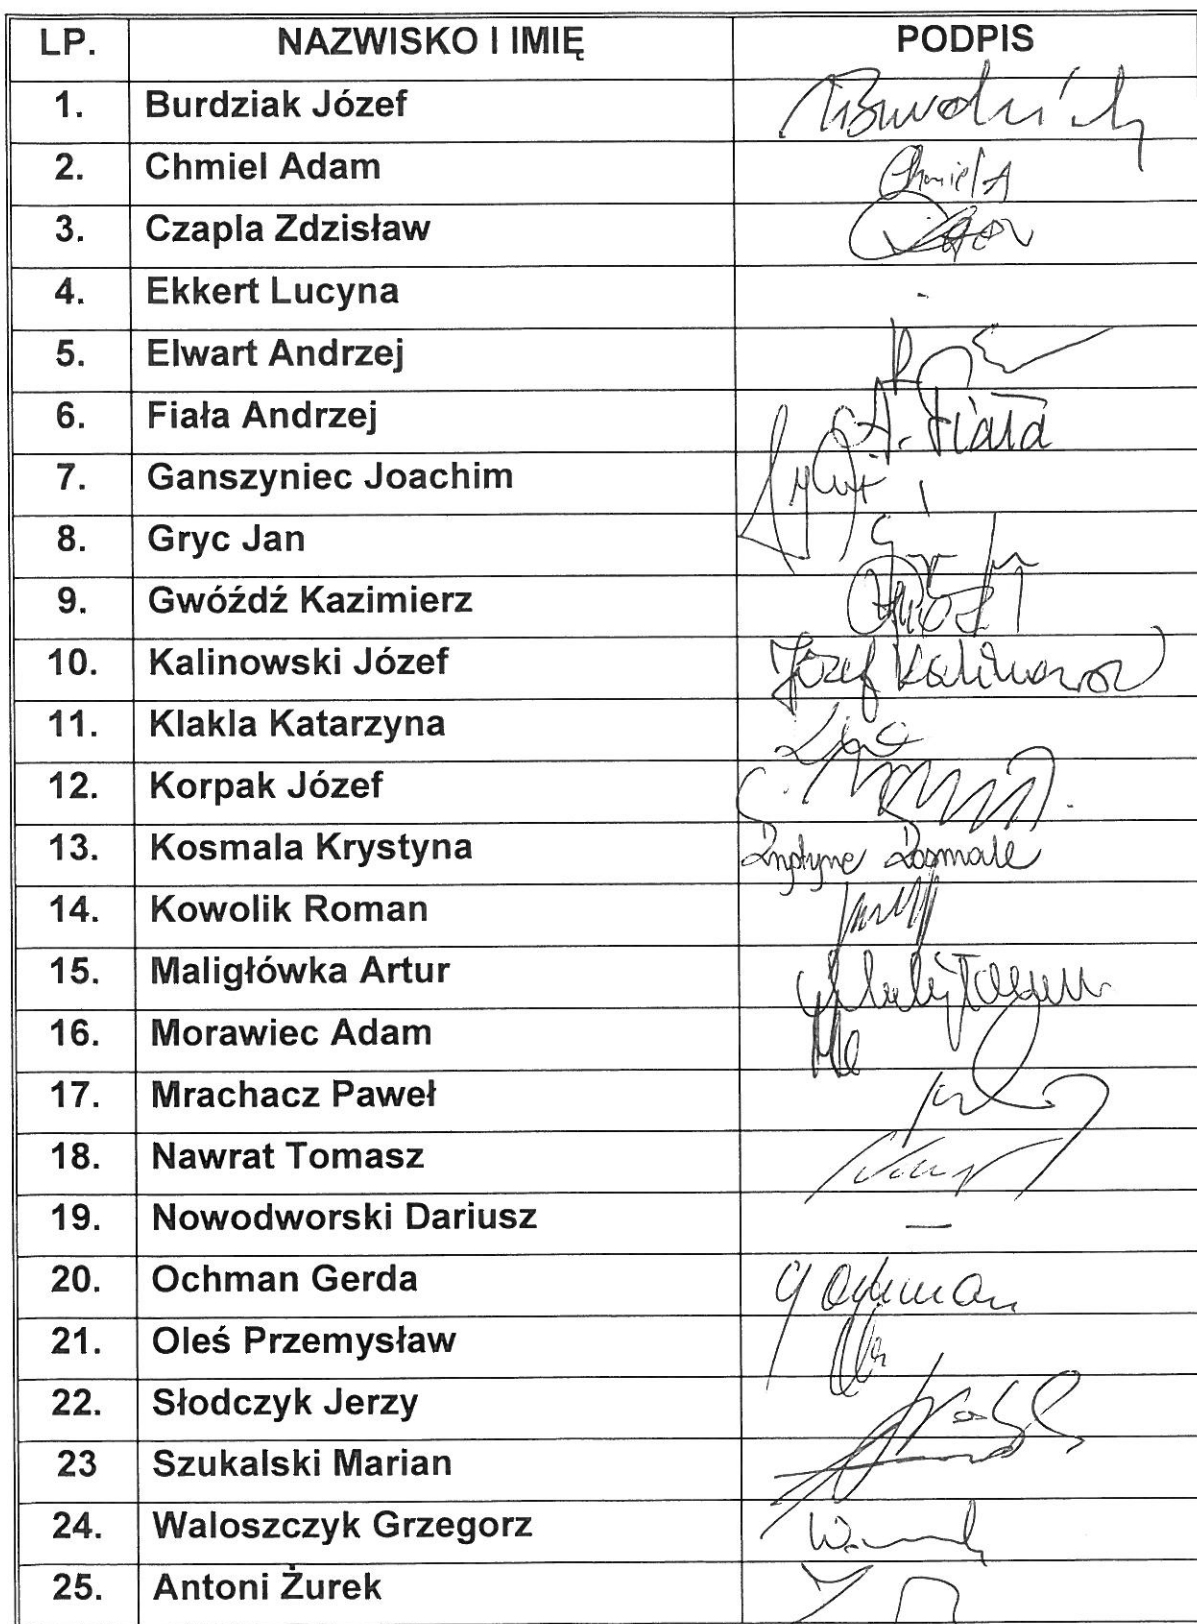 LP. NAZWISKO I IMIĘ PODPIS
1. Burdziak Józef
2. Chmiel Adam Chmiel A
3. Czapla Zdzisław
4. Ekkert Lucyna -
5. Elwart Andrzej
6. Fiała Andrzej A. Fiała
7. Ganszyniec Joachim
8. Gryc Jan
9. Gwóźdź Kazimierz
10. Kalinowski Józef Józef
11. Klakla Katarzyna
12. Korpak Józef
13. Kosmala Krystyna
14. Kowolik Roman
15. Maligłówka Artur
16. Morawiec Adam
17. Mrachacz Paweł
18. Nawrat Tomasz
19. Nowodworski Dariusz —
20. Ochman Gerda G Ochman
21. Oleś Przemysław
22. Słodczyk Jerzy
23 Szukalski Marian
24. Waloszczyk Grzegorz
25. Antoni Żurek